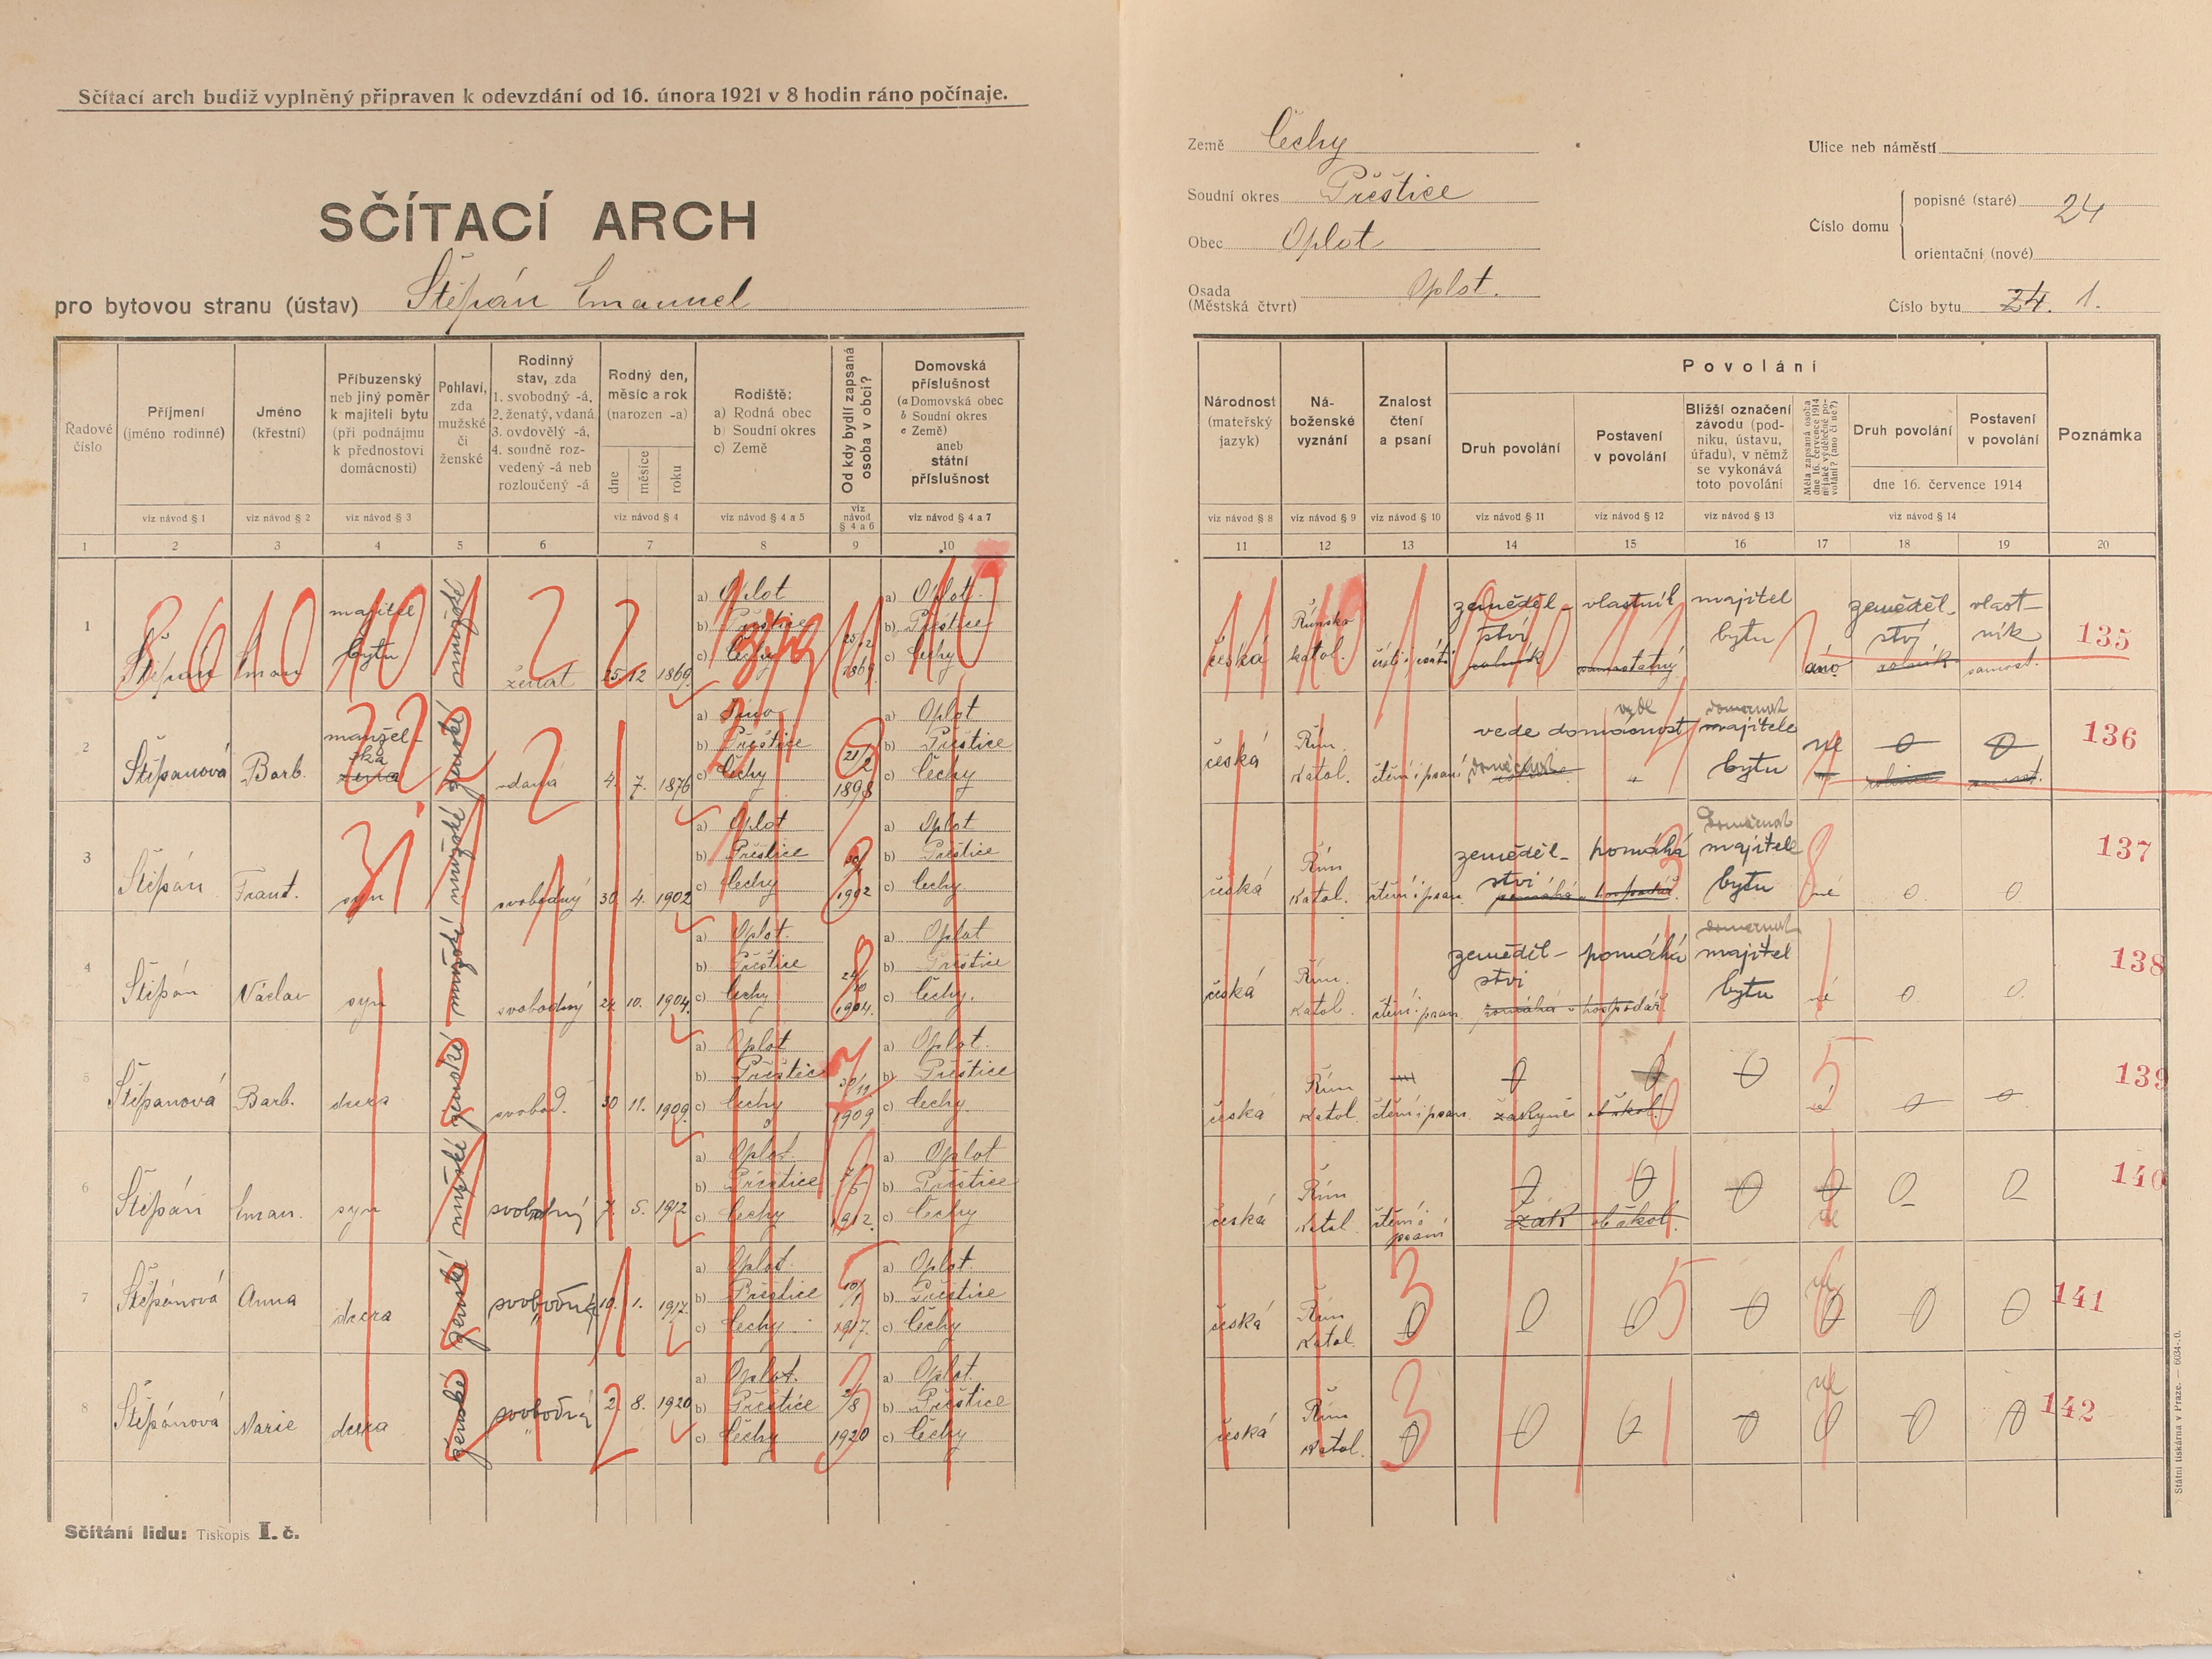 Sčítací arch budiž vyplněný připraven k odevzdání od 16. února 1921 v 8 hodin ráno počínaje.
SČÍTACÍ ARCH
pro bytovou stranu (ústav) Štěpán Emanuel
Země Čechy
Soudní okres Přeštice
Obec Oplot
Osada (Městská čtvrt) Oplot.
Ulice neb náměstí
Číslo domu
popisné (staré) 24
orientační (nové)
Číslo bytu 24. 1.
Řadové číslo
Příjmení (jméno rodinné)
Jméno (křestní)
Příbuzenský neb jiný poměr k majiteli bytu (při podnájmu k přednostovi domácnosti)
Pohlaví, zda mužské či ženské
Rodinný stav, zda 1. svobodný -á, 2. ženatý, vdaná 3. ovdovělý -á, 4. soudně rozvedený -á neb rozloučený -á
Rodný den, měsíc a rok (narozen -a)
dne měsíce roku
Rodiště: a) Rodná obec b) Soudní okres c) Země
Od kdy bydlí zapsaná osoba v obci?
Domovská příslušnost (a Domovská obec b Soudní okres c Země) aneb státní příslušnost
viz návod § 1
viz návod § 2
viz návod § 3
viz návod § 4
viz návod § 4 a 5
viz návod § 4 a 6
viz návod § 4 a 7
1 2 3 4 5 6 7 8 9 10
Národnost (mateřský jazyk)
Náboženské vyznání
Znalost čtení a psaní
Povolání
Druh povolání
Postavení v povolání
Bližší označení závodu (podniku, ústavu, úřadu), v němž se vykonává toto povolání
Měla zapsaná osoba dne 16. července 1914 nějaké výdělečné povolání? (ano či ne?)
Druh povolání
Postavení v povolání
dne 16. července 1914
Poznámka
viz návod § 8
viz návod § 9
viz návod § 10
viz návod § 11
viz návod § 12
viz návod § 13
viz návod § 14
11 12 13 14 15 16 17 18 19 20
1 Štěpán Eman majitel bytu mužské ženat 25 12 1869. a) Oplot b) Přeštice c) Čechy 25/12 1869. a) Oplot. b) Přeštice c) Čechy
česká Římsko katol. zemědělství rolník vlastník samostatný majitel bytu ano zemědělství rolník vlastník samost. 135
2 Štěpánová Barb. manželka žena ženské vdaná 4. 7. 1876 a) b) Přeštice c) Čechy 21/2 1898 a) Oplot b) Přeštice c) Čechy
česká Řím. Katol. čtení i psaní vede domácnost domácnost majitele bytu ne 0 0 136
3 Štěpán Frant. syn mužské svobodný 30 4. 1902 a) Oplot b) Přeštice c) Čechy 30/4 1902 a) Oplot b) Přeštice c) Čechy
česká Řím Katol. čtení i psan. zemědělství pomáhá domácnost majitele bytu né 0 0 137
4 Štěpán Václav syn mužské svobodný 24. 10. 1904. a) Oplot. b) Přeštice c) Čechy 24/10 1904. a) Oplot b) Přeštice c) Čechy.
česká Řím. Katol. čtení i psan. zemědělství pomáhá pomáhá hospodář. domácnost majitel bytu né 0 0. 138
5 Štěpánová Barb. dcera ženské svobod. 30 11. 1909. a) Oplot b) Přeštice c) Čechy 30/11 1909 a) Oplot. b) Přeštice c) Čechy
česká Řím Katol. čtení i psan. 0 žákyně 0 ob. škol. 0 0 0 139
6 Štěpán Eman. syn mužské svobodný 7. 5. 1912 a) Oplot. b) Přeštice c) Čechy 7/5 1912. a) Oplot b) Přeštice c) Čechy
česká Řím Katol čtení i psaní 0 žák 0 ob škol. 0 0 ne 0 0 140
7 Štěpánová Anna dcera ženské svobodná 10. 1. 1917. a) Oplot. b) Přeštice c) Čechy 10/1 1917. a) Oplot. b) Přeštice c) Čechy
česká Řím Katol. 0 0 0 0 ne 0 0 0 141
8 Štěpánová Marie dcera ženské svobodná 2 8. 1920 a) Oplot. b) Přeštice c) Čechy 2/8 1920 a) Oplot. b) Přeštice c) Čechy
česká Řím Katol. 0 0 0 0 ne 0 0 0 142
Sčítání lidu: Tiskopis I. č.
Státní tiskárna v Praze. — 6034-.0.